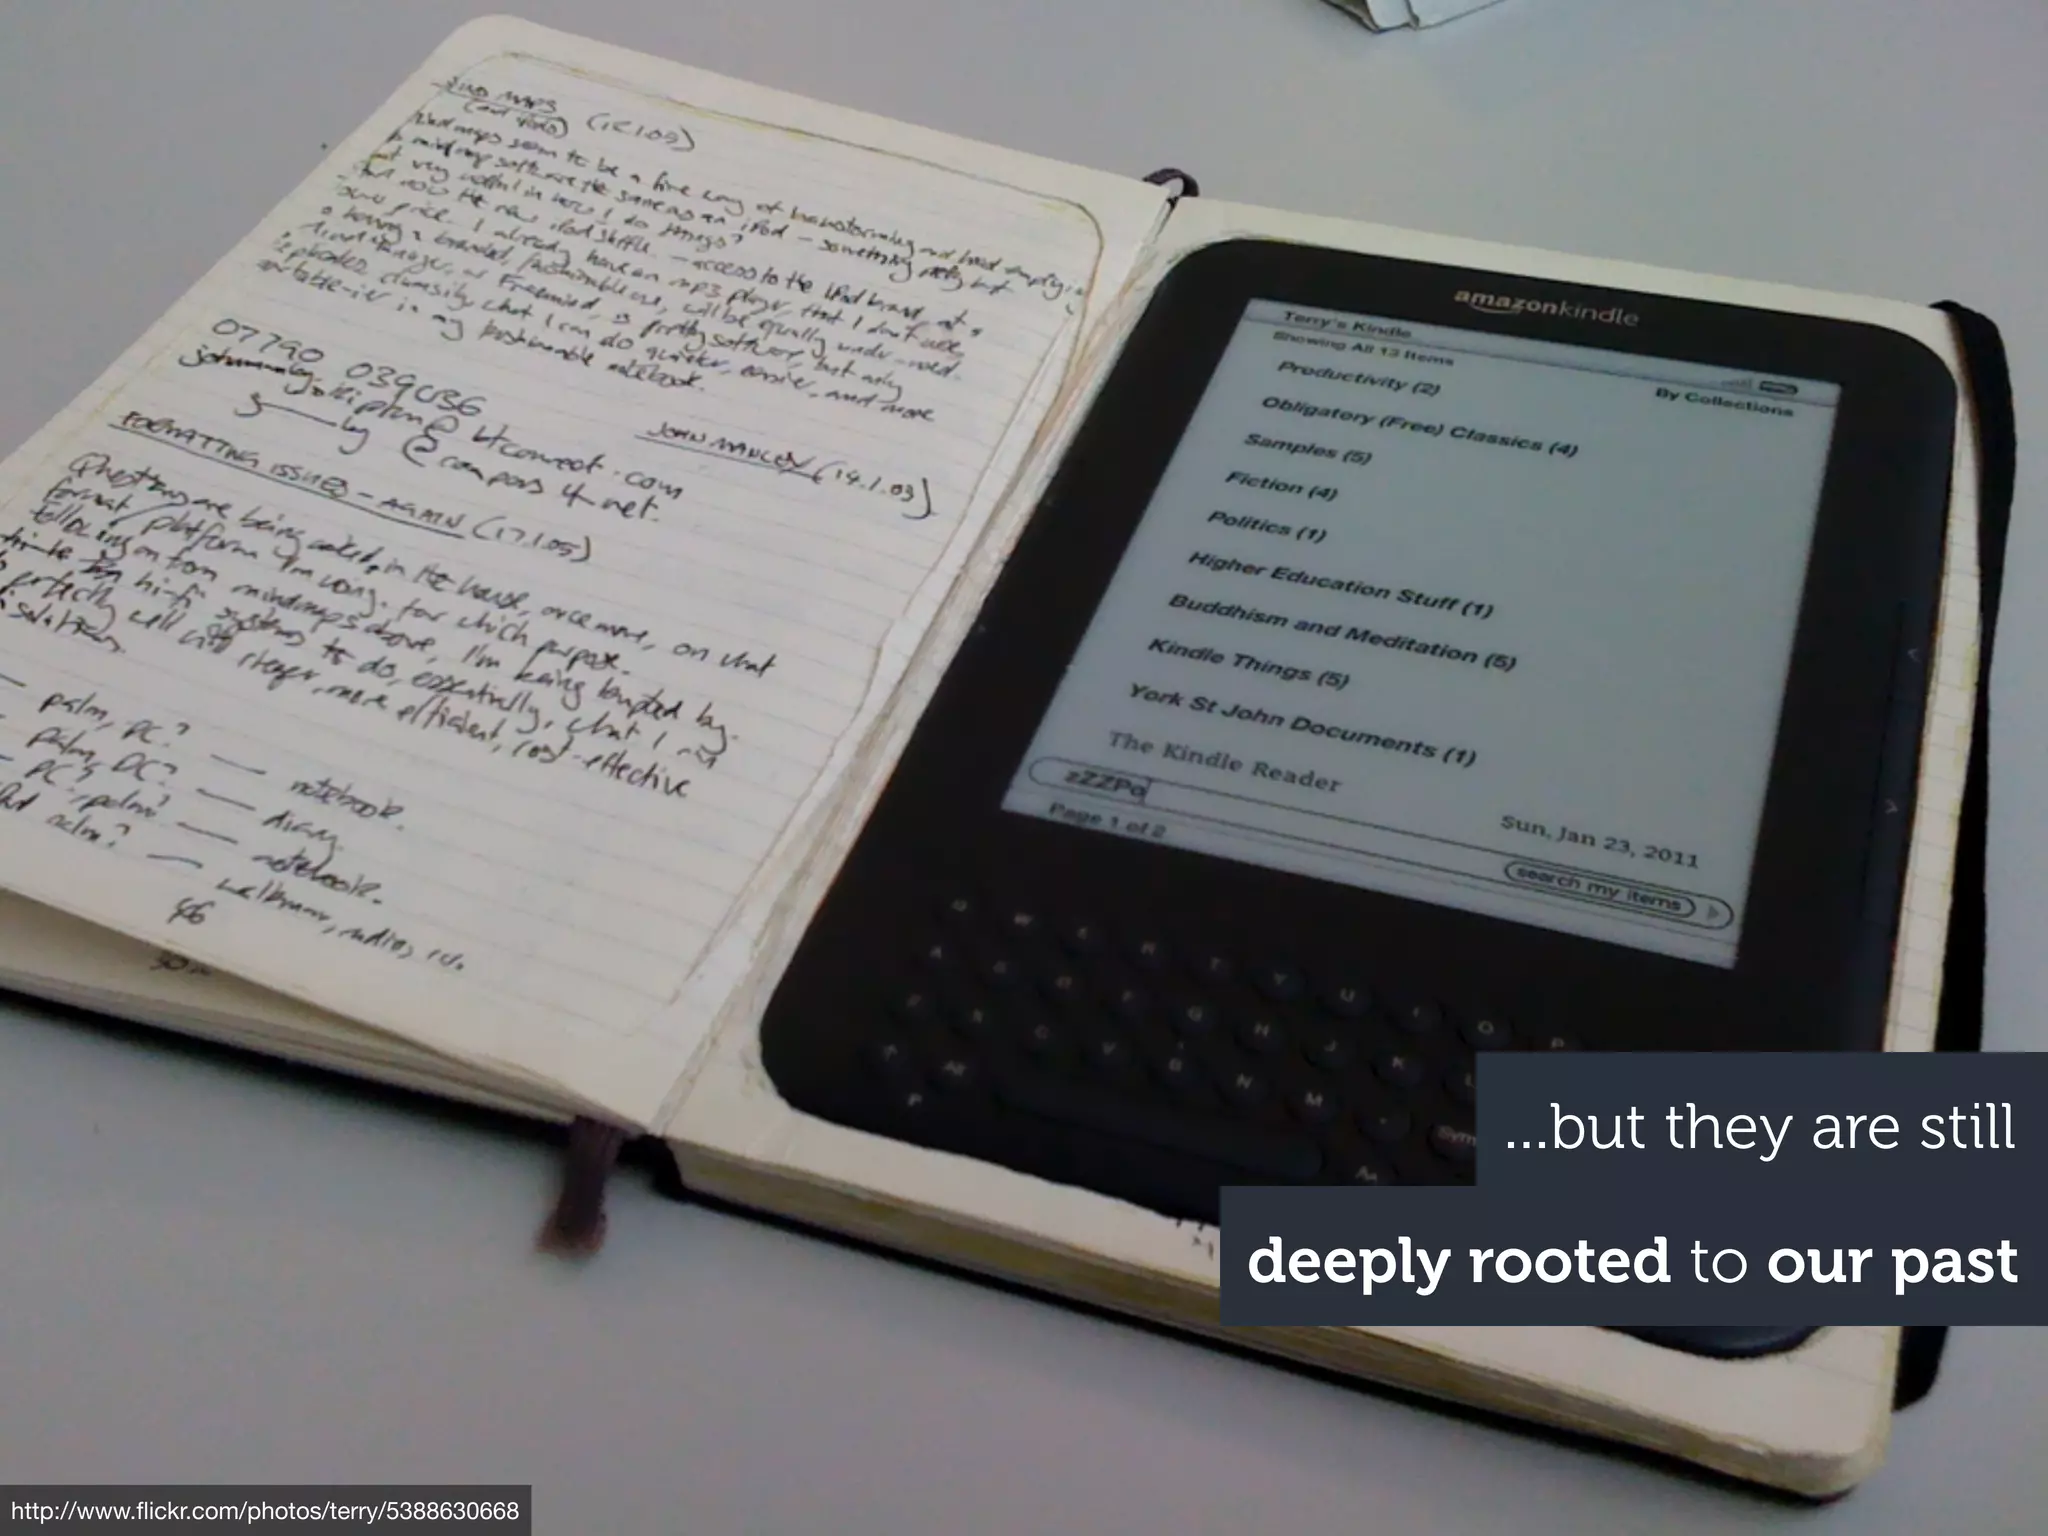 MIND MAPS
(and todo) (12.1.05)
Mind maps seem to be a fine way of brainstorming and head emptying
mind map software the same as an iPod - something pretty but
not very useful in how I do things?
now the new iPod shuffle. - access to the iPod brand, at a
price. I already have an mp3 player, that I don't use,
a branded, fashionable one, will be equally under-used.
Mind Manager, or Freemind, is pretty software, but only
replicates, clumsily, what I can do quicker, easier, and more
portable-ier in my fashionable notebook.
JOHN MANCEY (14.1.03)
@ btconnect.com
FORMATTING ISSUES - AGAIN (17.1.05)
Questions are being asked, in the house, once more, on what
format/platform I'm using. for which purpose.
following on from mindmaps above, I'm being tempted by
hi-fi systems to do, essentially, what I can
perfectly well with cheaper, more efficient, cost-effective
solutions.
— palm, PC? — notebook.
palm, PC? — diary.
PC? palm? — notebook.
palm? — walkman, radio, cd.
46
amazonkindle
Terry's Kindle
Showing All 13 Items
By Collections
Productivity (2)
Obligatory (Free) Classics (4)
Samples (5)
Fiction (4)
Politics (1)
Higher Education Stuff (1)
Buddhism and Meditation (5)
Kindle Things (5)
York St John Documents (1)
The Kindle Reader
Sun, Jan 23, 2011
zZZPo
search my items
Page 1 of 2
Q W E R T Y U I O P
A S D F G H J K L
Z X C V B N M .
Alt
Sym
Aa
...but they are still
deeply rooted to our past
http://www.flickr.com/photos/terry/5388630668